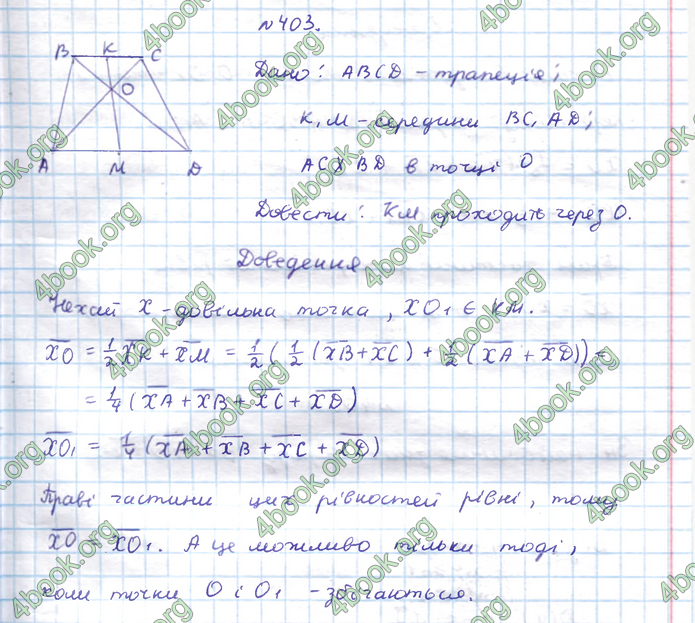 №403.
B K C
Дано: ABCD – трапеція;
O
K, M – середини BC, AD;
A M D
AC X BD в точці O
Довести: KM проходить через O.
Доведення
Нехай X – довільна точка, XO₁ ∈ KM.
XO = 1/2 XK + XM = 1/2 ( 1/2 (XB + XC) + 1/2 (XA + XD)) =
= 1/4 (XA + XB + XC + XD)
XO₁ = 1/4 (XA + XB + XC + XD)
Праві частини цих рівностей рівні, тому
XO = XO₁. А це можливо тільки тоді,
коли точки O і O₁ – збігаються.
4book.org